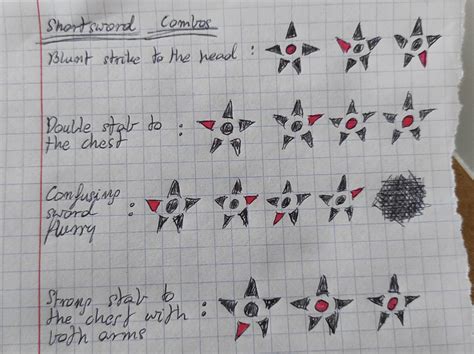 Shortsword Combos
Blunt strike to the head :
Double stab to :
the chest
Confusing
sword :
flurry
Strong stab to
the chest with :
both arms